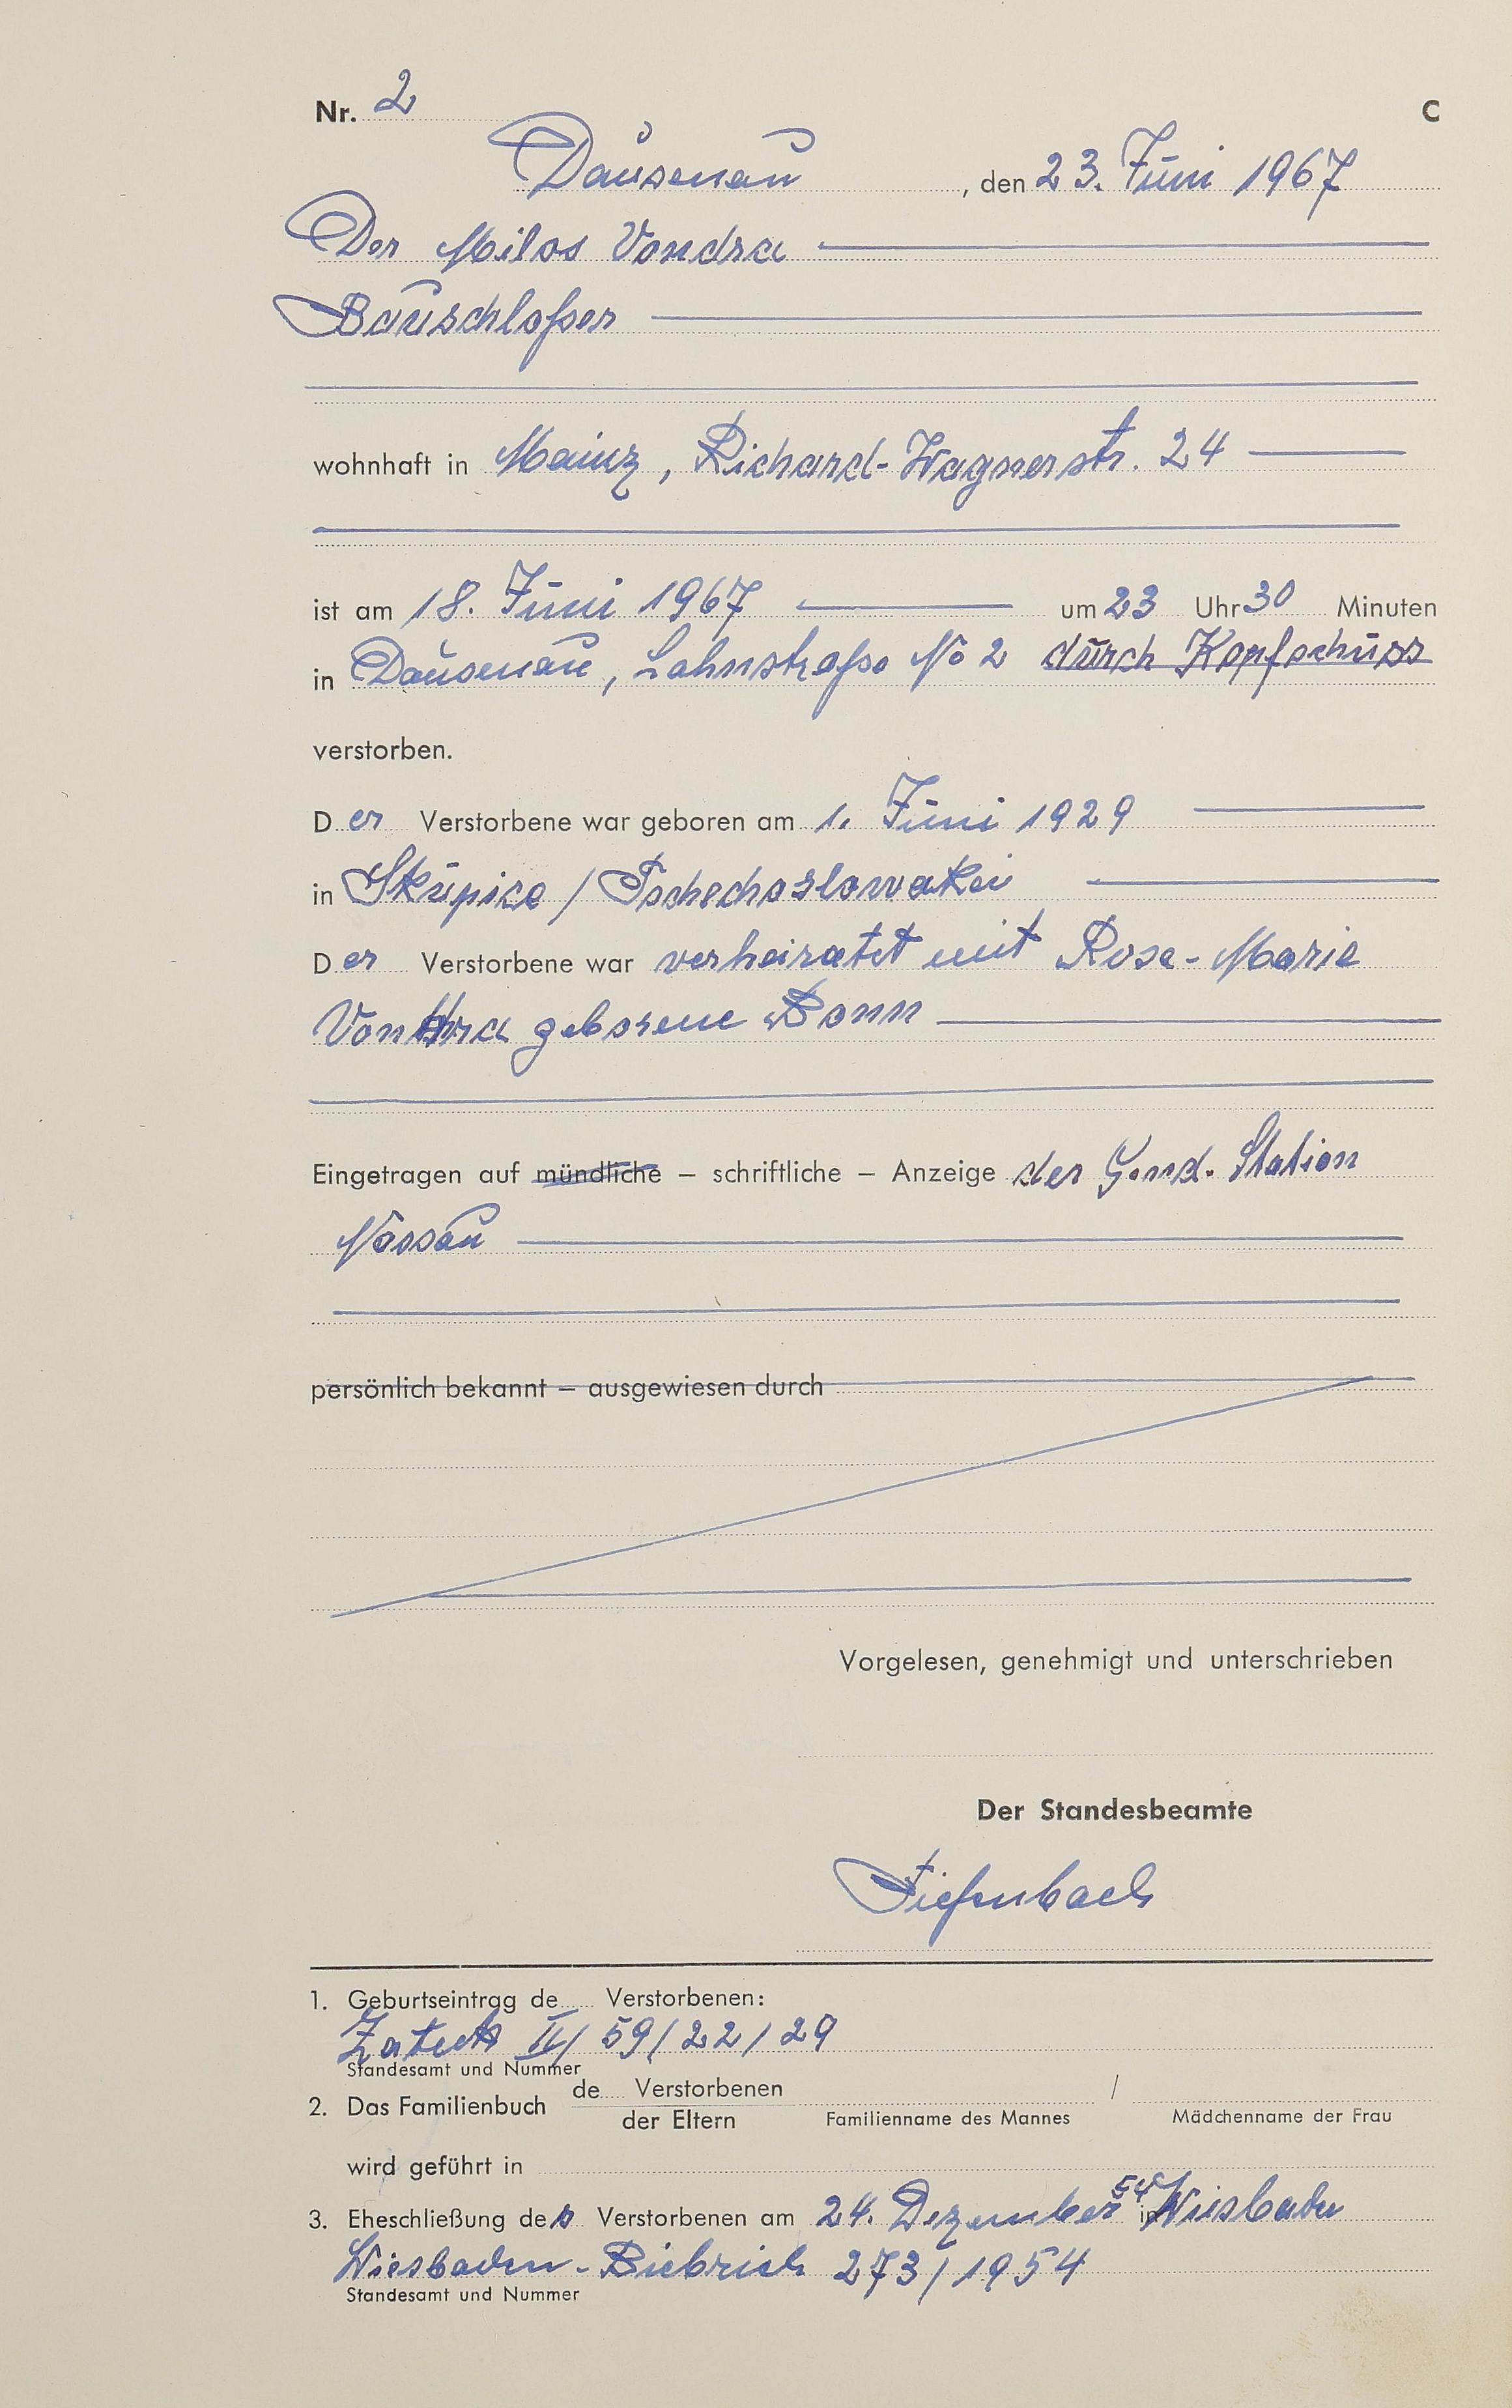 Nr. 2
C
Dausenau, den 23. Juni 1967
Der Milos Vondra
Bauschlosser
wohnhaft in Mainz, Richard-Wagnerstr. 24
ist am 18. Juni 1967 um 23 Uhr 30 Minuten
in Dausenau, Lahnstraße No 2 durch Kopfschuss
verstorben.
Der Verstorbene war geboren am 1. Juni 1929
in Skupice / Tschechoslowakei
Der Verstorbene war verheiratet mit Rose-Marie
Vondra geborene Bonn
Eingetragen auf mündliche – schriftliche – Anzeige der Gend. Station
Nassau
persönlich bekannt – ausgewiesen durch
Vorgelesen, genehmigt und unterschrieben
Der Standesbeamte
Tiefenbach
1. Geburtseintrag de Verstorbenen:
II/59/22/29
Standesamt und Nummer
2. Das Familienbuch de Verstorbenen / der Eltern
Familienname des Mannes Mädchenname der Frau
wird geführt in
3. Eheschließung des Verstorbenen am 24. Dezember 54 in Wiesbaden
Wiesbaden-Biebrich 273/1954
Standesamt und Nummer